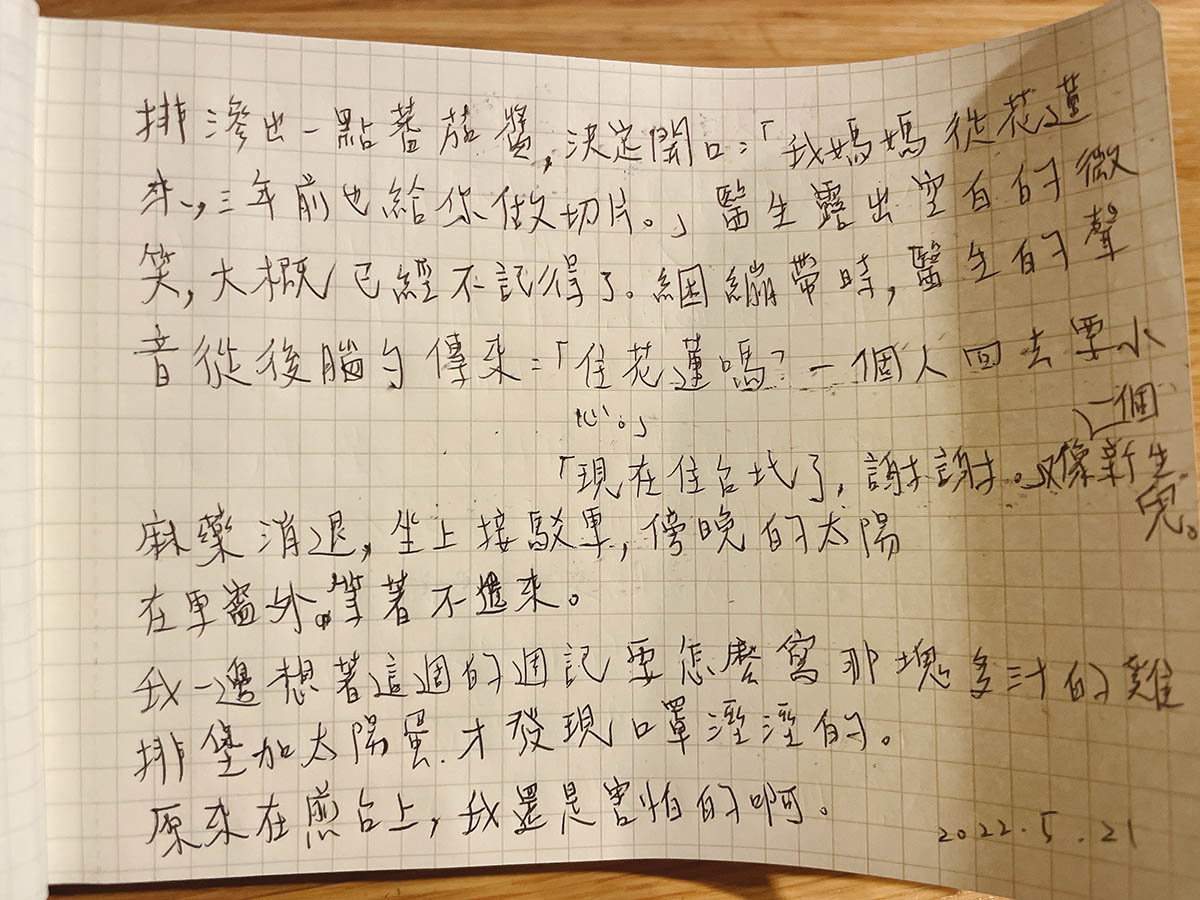 排滲出一點蕃茄醬,決定開口:「我媽媽從花蓮
來,三年前也給你做切片。」醫生露出空白的微
笑,大概已經不記得了。綑繃帶時,醫生的聲
音從後腦勺傳來:「住花蓮嗎?一個人回去要小
心。」
「現在住台北了,謝謝。」像一個新生
兒。
麻藥消退,坐上接駁車,傍晚的太陽
在車窗外等著不進來。
我一邊想著這週的週記要怎麼寫那塊多汁的雞
排堡加太陽蛋.才發現口罩溼溼的。
原來在煎台上,我還是害怕的啊。
2022.5.21